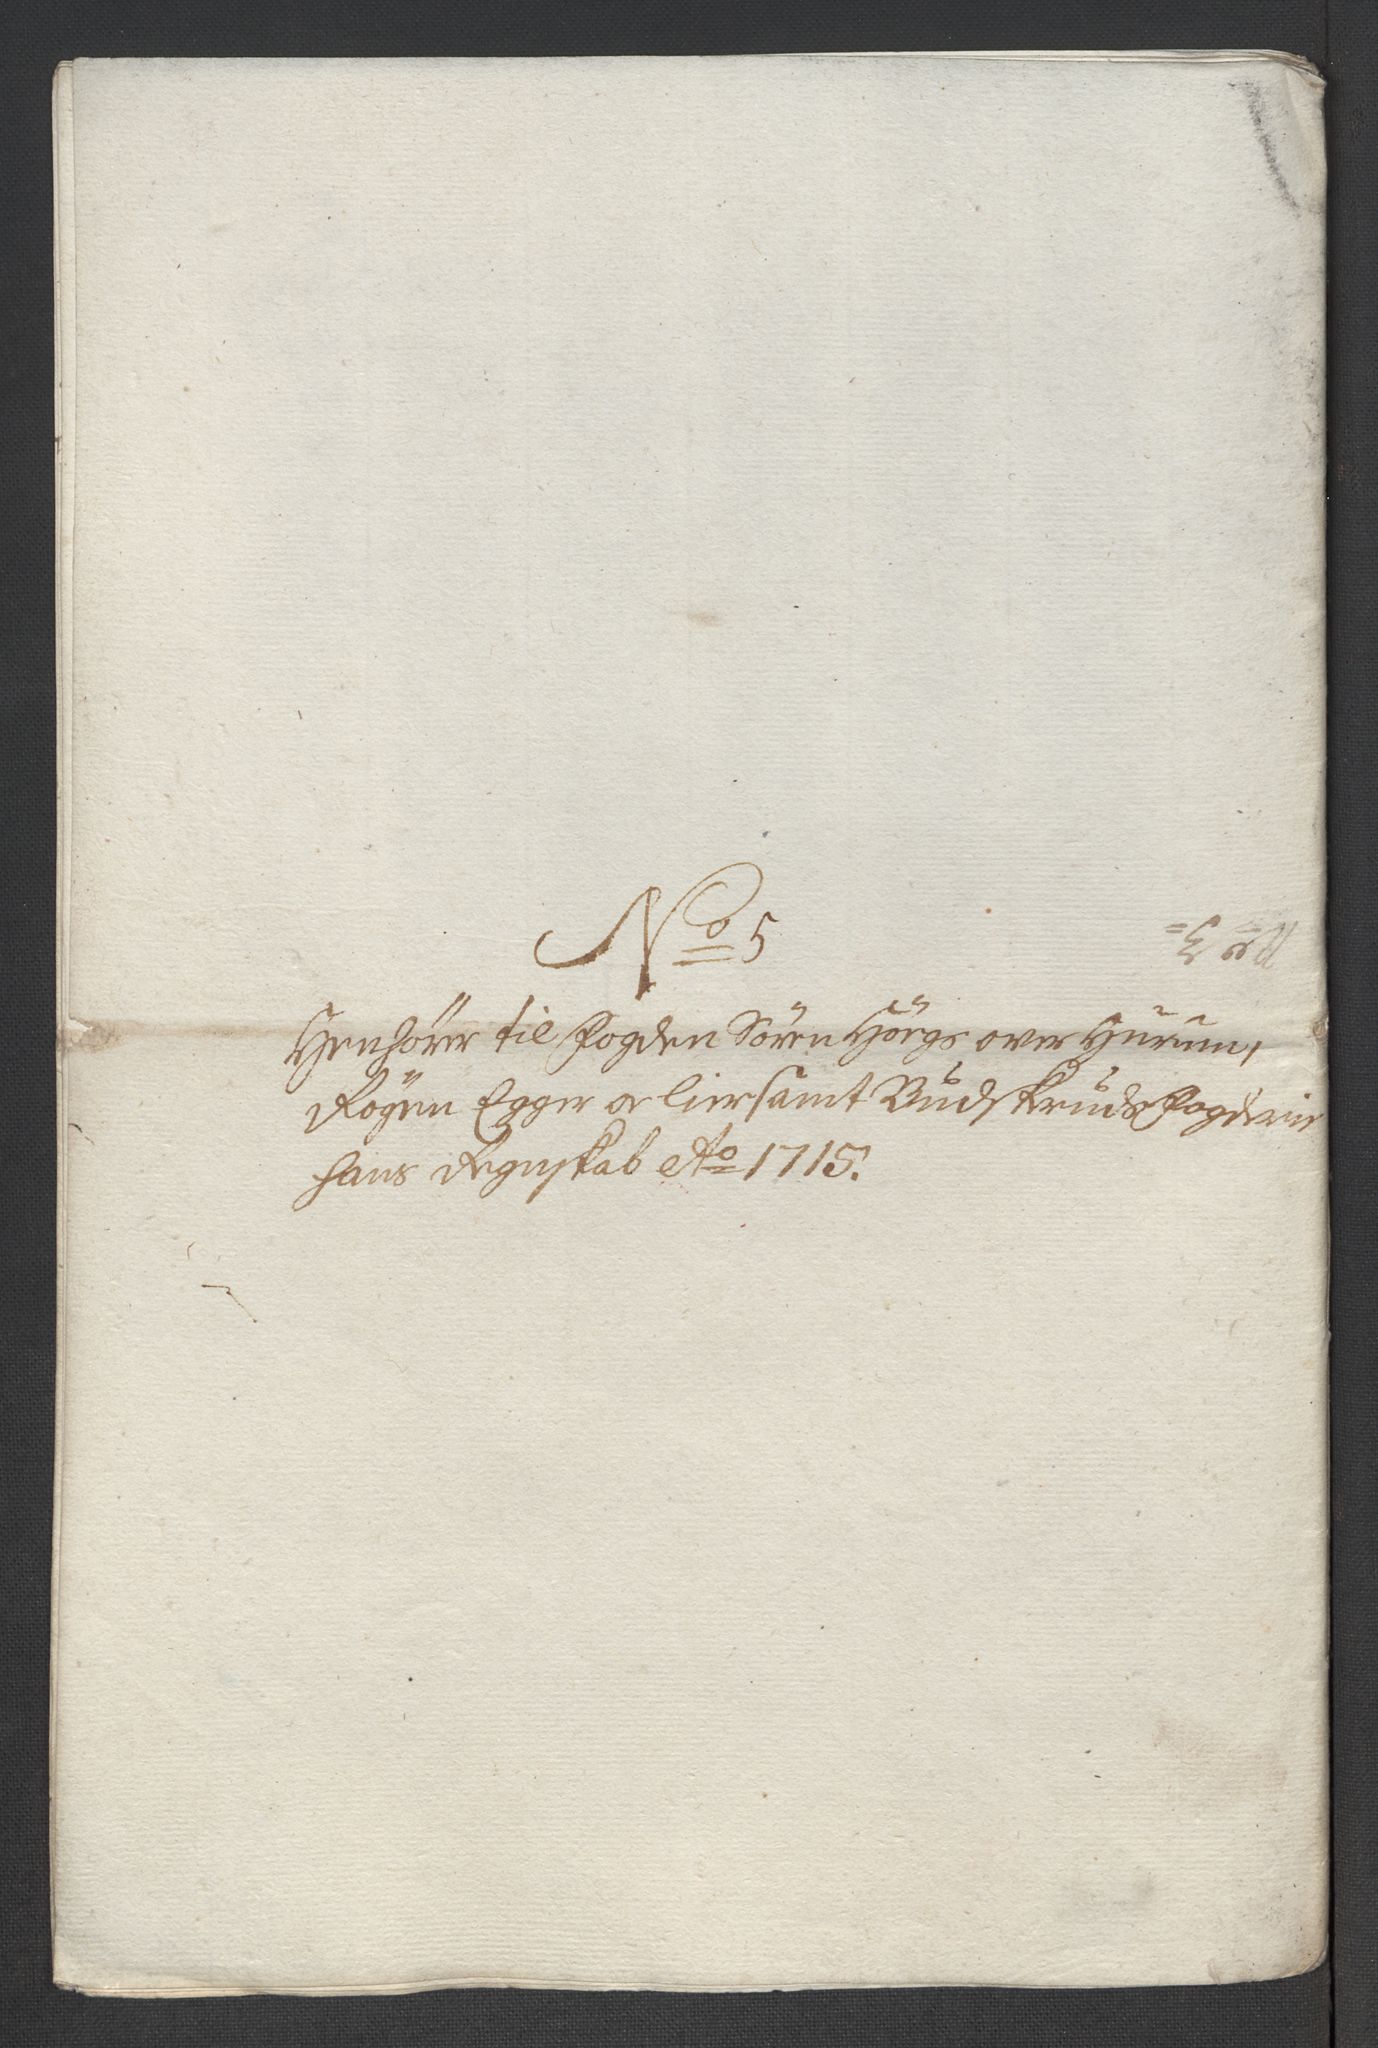 No 5
Henhörer til Fogden Sören Hörgs over Hurum,
Rögen Egger oc lier samt Budskruds Fogderie
hans Regnskab Ao 1715.
No 3